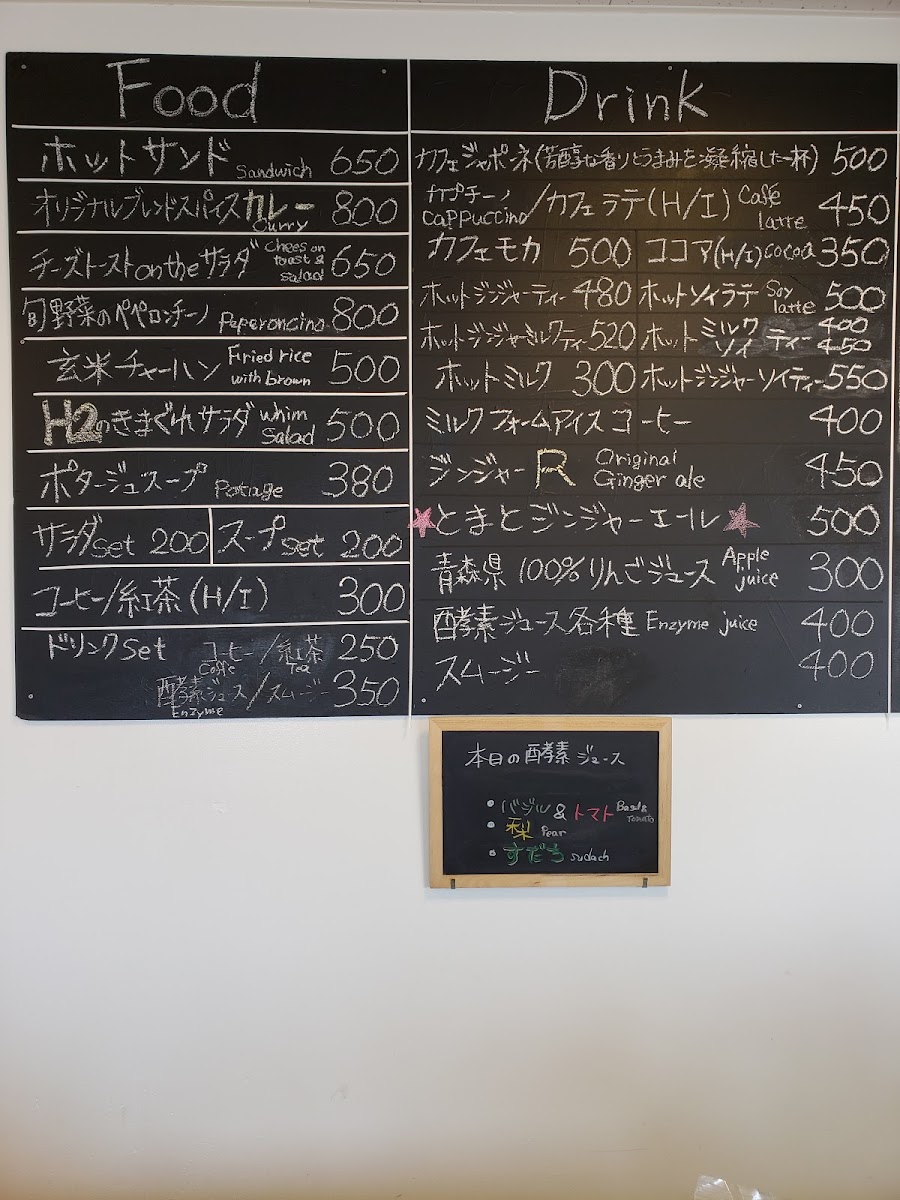 Food
ホットサンド Sandwich 650
オリジナルブレンドスパイスカレー Curry 800
チーズトースト on the サラダ Chees on toast & salad 650
旬野菜のペペロンチーノ Peperoncino 800
玄米チャーハン Firied rice with brown 500
H2のきまぐれサラダ whim Salad 500
ポタージュスープ Potage 380
サラダset 200 スープset 200
コーヒー/紅茶(H/I) 300
ドリンクset コーヒー/紅茶 250
Caffe Tea
酵素ジュース/スムージー 350
Enzyme
Drink
カフェジャポーネ(芳醇な香りとうまみを凝縮した一杯) 500
カプチーノ cappuccino/カフェラテ(H/I) Café latte 450
カフェモカ 500 ココア(H/I) cocoa 350
ホットジンジャーティー 480 ホットソイラテ Soy latte 500
ホットジンジャーミルクティー 520 ホットミルク ソイ ティー 400 450
ホットミルク 300 ホットジンジャーソイティー 550
ミルクフォームアイスコーヒー 400
ジンジャーR Original Ginger ale 450
とまとジンジャーエール 500
青森県100%りんごジュース Apple juice 300
酵素ジュース各種 Enzyme juice 400
スムージー 400
本日の酵素ジュース
• バジル & トマト Basil & Tomato
• 梨 Pear
• すだち sudach